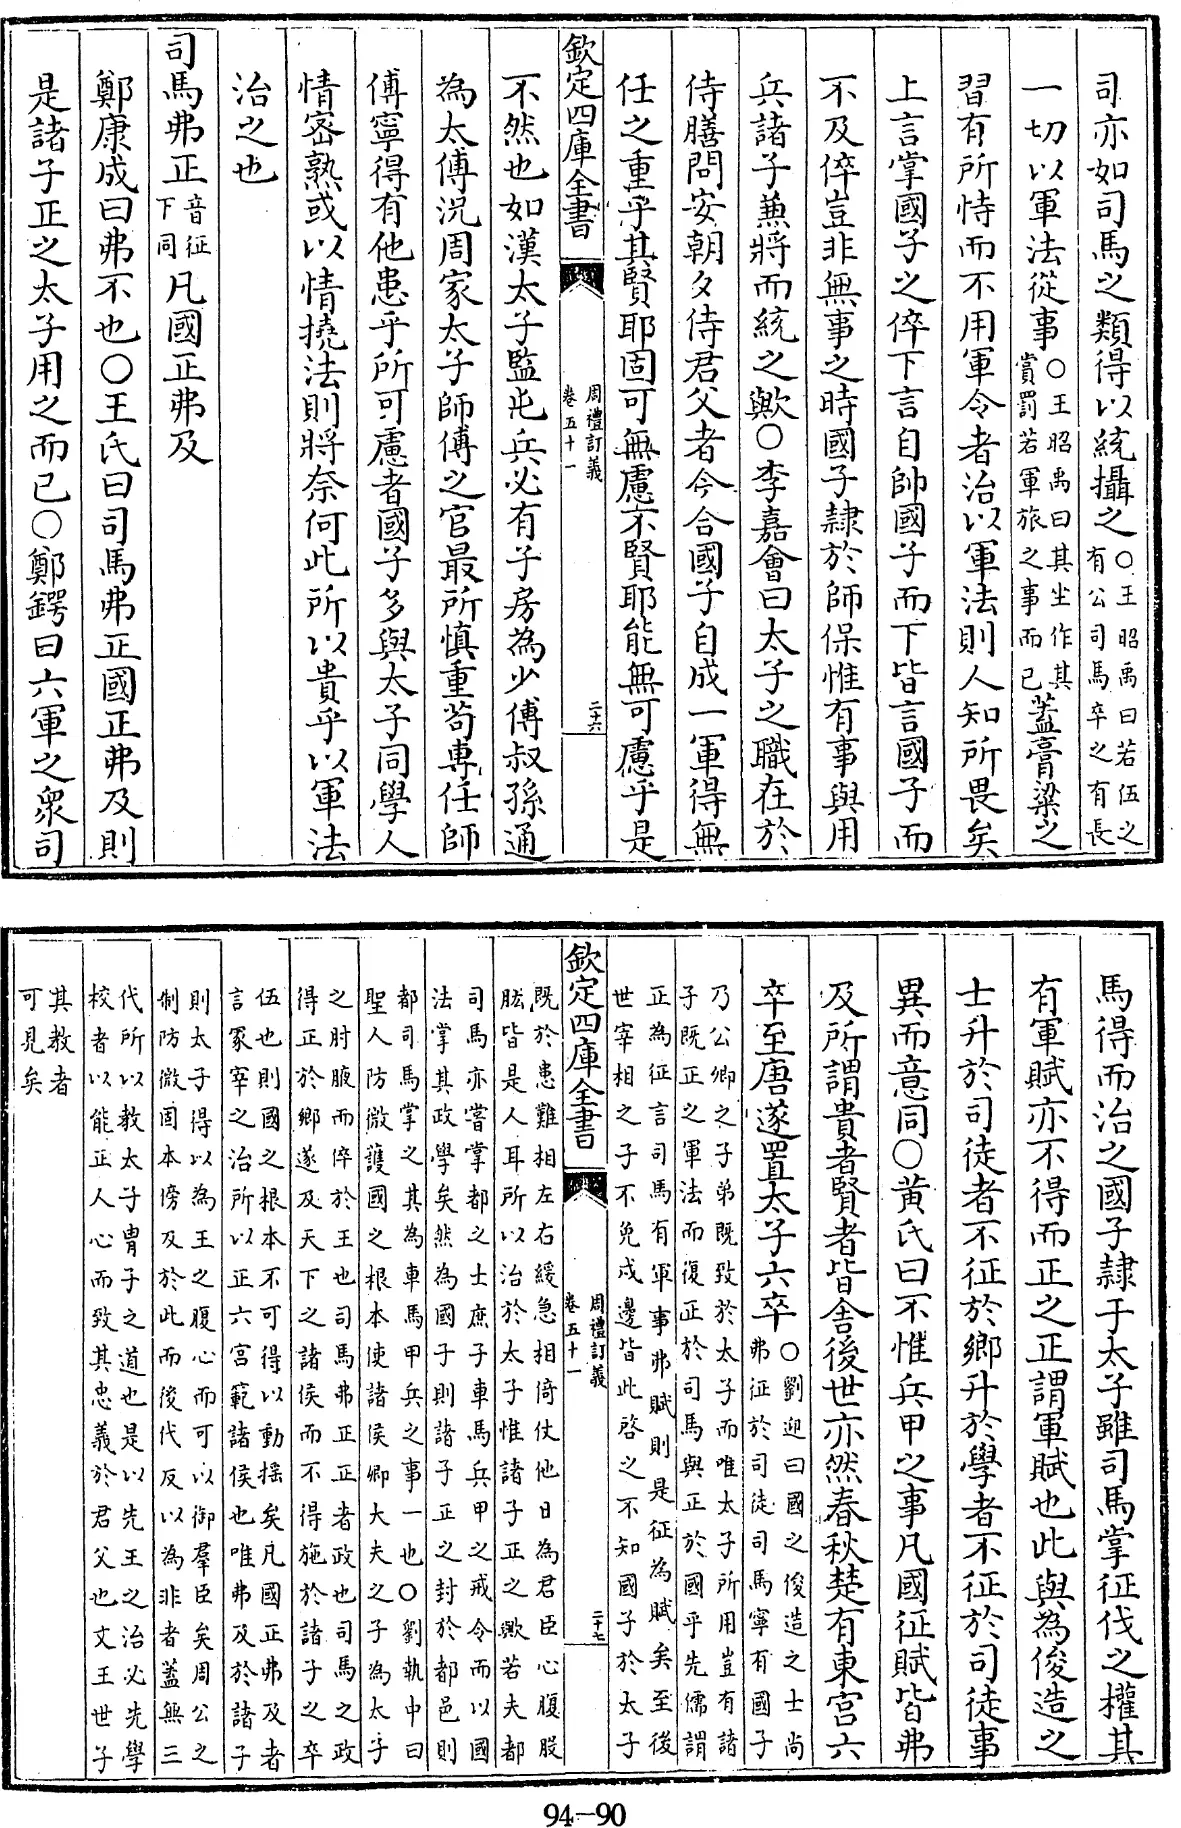 司亦如司馬之類得以統攝之○王昭禹曰若伍之有公司馬卒之有長
一切以軍法從事○王昭禹曰其坐作其賞罰若軍旅之事而已蓋膏粱之
習有所恃而不用軍令者治以軍法則人知所畏矣
上言掌國子之倅下言自帥國子而下皆言國子而
不及倅豈非無事之時國子隷於師保惟有事與用
兵諸子兼將而統之歟○李嘉會曰太子之職在於
侍膳問安朝夕侍君父者今合國子自成一軍得無
任之重乎其賢耶固可無慮不賢耶能無可慮乎是
欽定四庫全書
周禮訂義
卷五十一
二十六
不然也如漢太子監屯兵必有子房為少傅叔孫通
為太傅況周家太子師傅之官最所慎重茍專任師
傅寧得有他患乎所可慮者國子多與太子同學人
情密熟或以情撓法則將奈何此所以貴乎以軍法
治之也
司馬弗正音征下同凡國正弗及
鄭康成曰弗不也○王氏曰司馬弗正國正弗及則
是諸子正之太子用之而已○鄭鍔曰六軍之衆司
馬得而治之國子隷于太子雖司馬掌征伐之權其
有軍賦亦不得而正之正謂軍賦也此與為俊造之
士升於司徒者不征於鄉升於學者不征於司徒事
異而意同○黄氏曰不惟兵甲之事凡國征賦皆弗
及所謂貴者賢者皆舍後世亦然春秋楚有東宫六
卒至唐遂置太子六卒○劉迎曰國之俊造之士尚弗征於司徒司馬寧有國子
乃公卿之子弟既致於太子而唯太子所用豈有諸
子既正之軍法而復正於司馬與正於國乎先儒謂
正為征言司馬有軍事弗賦則是征為賦矣至後
世宰相之子不免戍邊皆此啓之不知國子於太子
欽定四庫全書
周禮訂義
卷五十一
二十七
既於患難相左右緩急相倚仗他日為君臣心腹股
肱皆是人耳所以治於太子惟諸子正之歟若夫都
司馬亦嘗掌都之士庶子車馬兵甲之戒令而以國
法掌其政學矣然為國子則諸子正之封於都邑則
都司馬掌之其為車馬甲兵之事一也○劉執中曰
聖人防微護國之根本使諸侯卿大夫之子為太子
之肘腋而倅於王也司馬弗正正者政也司馬之政
得正於鄉遂及天下之諸侯而不得施於諸子之卒
伍也則國之根本不可得以動揺矣凡國正弗及者
言冢宰之治所以正六宫範諸侯也唯弗及於諸子
則太子得以為王之腹心而可以御羣臣矣周公之
制防微固本傍及於此而後代反以為非者蓋無三
代所以教太子胄子之道也是以先王之治必先學
校者以能正人心而致其忠義於君父也文王世子
其教者
可見矣
94-90